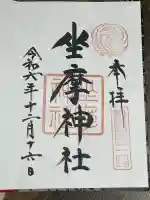 奉拝
坐摩神社
令和六年十二月十六日